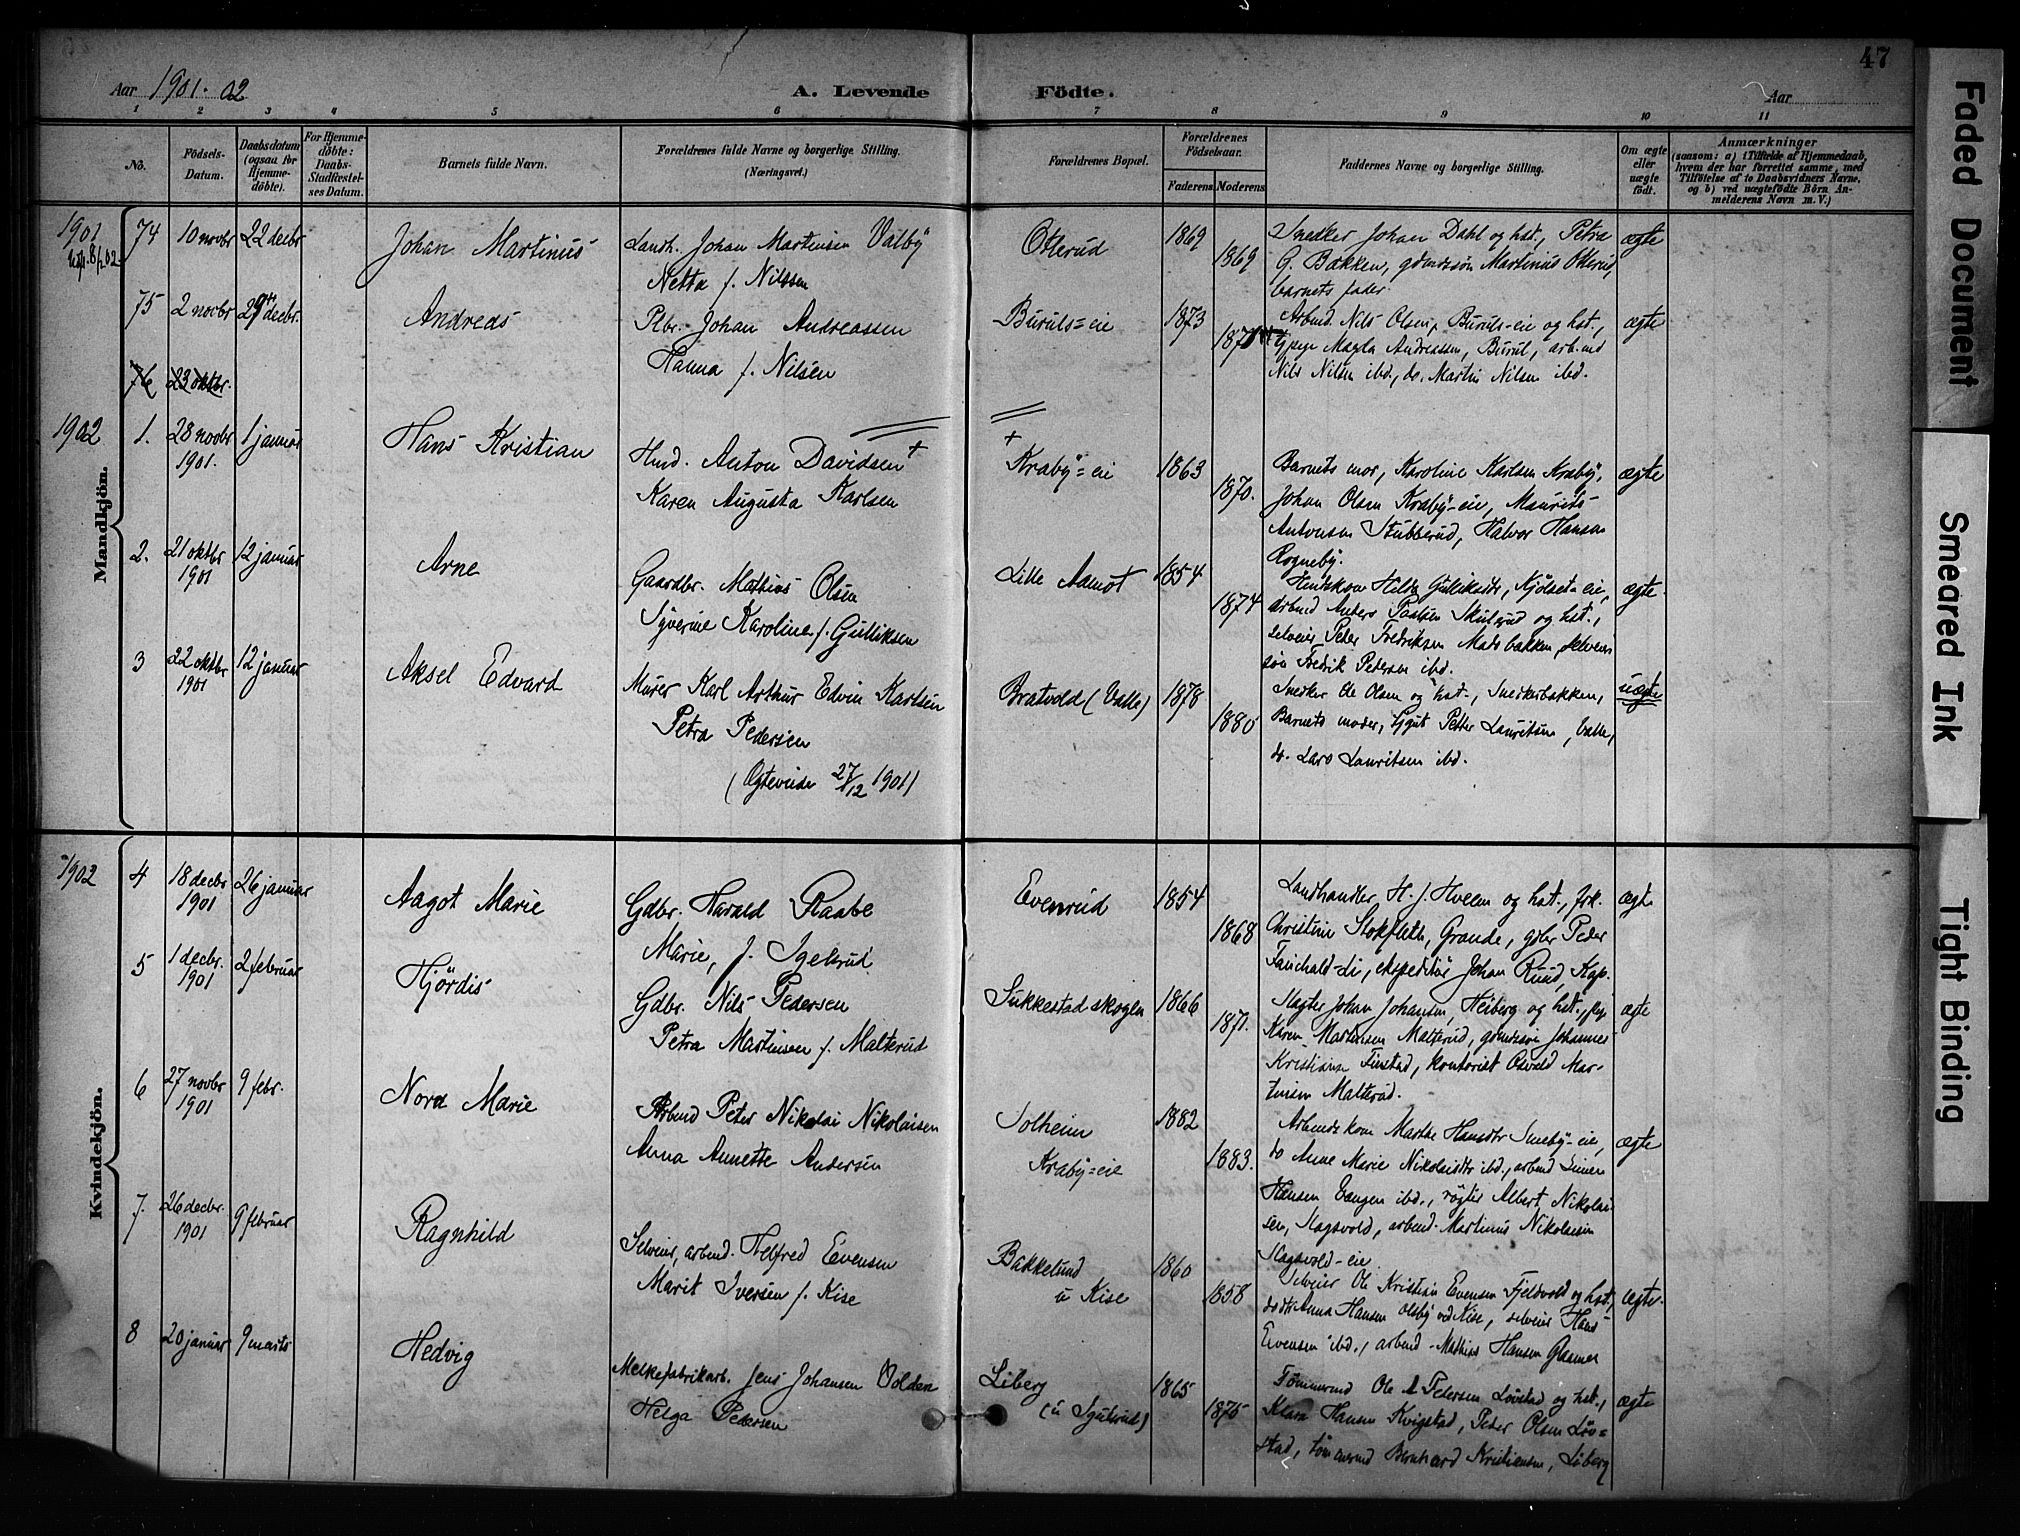 Aar 1901-02
A. Levende Födte.
Aar
47
1 2 3 4 5 6 7 8 9 10 11
No.
Födsels-Datum.
Daabsdatum (ogsaa for Hjemmedöbte).
For Hjemmedöbte: Daabs-Stadfæstelses Datum.
Barnets fulde Navn.
Forældrenes fulde Navne og borgerlige Stilling.
(Næringsvei.)
Forældrenes Bopæl.
Forældrenes Födselsaar.
Faderens Moderens
Faddernes Navne og borgerlige Stilling.
Om ægte eller uægte födt.
Anmærkninger
(saasom: a) i Tilfælde af Hjemmedaab, hvem der har forrettet samme, med Tilföielse af to Daabsvidners Navne, og b) ved uægtefödte Börn Anmelderens Navn m. V.)
Mandkjön.
Kvindekjön.
1901
74 10 novbr 22 decbr
Johan Martinus
Landh. Johan Martinsen Valby
Netta f. Nilssen
Otterud
1869
1869
Snedker Johan Dahl og hst., Petra
G. Bakken, gdmdssön Martinus Otterud,
barnets fader.
ægte
75 2 novbr 29 decbr.
Andreas
Plbr. Johan Andreassen
Hanna f. Nilsen
Buruls-eie
1873
Arbmd. Nils Olsen, Buruls-eie og hst.,
pige Magda Andreassen, Burul, arb.md
Nils Nilsen ibd., do. Martin Nilsen ibd.
ægte
76 23 oktbr.
1902
1. 28 novbr 1901. 1 januar
Hans Kristian
Hmd. Anton Davidsen +
Karen Augusta Karlsen
+ Kraby-eie
1863
1870.
Barnets mor, Karoline Karlsen Kraby,
Johan Olsen Kraby-eie, Maurits
Antonsen Stubberud, Halvor Hansen
Rogneby.
ægte
2. 21 oktbr 1901 12 januar
Arne
Gaardbr. Mathias Olsen
Syverine Karoline f. Gulliksen
Lille Aamot
1854
1874
arbmd Anders Paulsen Skulerud og hst.,
selveier Peder Fredriksen Madsbakken, selveier
sön Fredrik Pedersen ibd.
ægte
3 22 oktbr 1901 12 januar
Aksel Edvard
Murer Karl Arthur Edvin Karlsen
Petra Pedersen
(Ægteviede 27/12 1901)
Bratvold (Valle)
1878
1880
Snedker Ole Olsen og hst., Snedkerbakken,
Barnets moder, Ungut Petter Lauritsen, Valle,
do. Lars Lauritsen ibd.
uægte
1902
4 18 decbr 1901 26 januar
Aagot Marie
Gdbr. Harald Raabe
Marie, f. Igelsrud
Evenrud
1854
1868
Landhandler H. J. Hveem og hst., frk.
Christine Stokfleth, Grande, gdbr Peder
Fauchald-Li, ekspeditör Johan Ruud, Kap.
ægte
5 1 decbr. 1901 2 februar
Hjördis
Gdbr. Nils Pedersen
Petra Martinsen f. Malterud
Sukkestadskogen
1866
1871.
Slagter Johan Johansen, Heiberg og hst., pige
Karen Martinsen Malterud, gdmdssön Johannes
Kristiansen Finstad, kontorist Osvald Mar-
tinsen Malterud.
ægte
6 27 novbr 1901 9 febr.
Nora Marie
Arbmd Peter Nikolai Nikolaisen
Anna Annette Andersen
Solheim
Kraby-eie
1882
1883.
Arbmdskone Marthe Hansdtr Smeby-eie,
do Anne Marie Nikolaisdtr ibd., arbmd Simen
Hansen Vangen ibd., rögter Albert Nikolai-
sen, Slagsvold, arbmd. Martinus Nikolaisen
Slagsvold-eie.
ægte
7. 26 decbr. 1901 9 februar
Ragnhild
Selveier, arbmd. Helfred Evensen
Marit Iversen f. Kise
Bakkelund
u Kise
1860
1858
Selveier Ole Kristian Evensen Fjeldvold og hst.,
Anna Hansen Olsby ved Kise, selveier Hans
Evensen ibd., arbmd. Mathias Hansen Glasmer
ægte.
8 20 januar 9 marts
Hedvig
Melkefabrikarb. Jens Johansen Volden
Helga Pedersen
Liberg
(u Igelsrud)
1865
1875
Tömmermd Ole Pedersen Lövstad og hst.,
Klara Hansen Kvigstad, Peder Olsen Löv=
stad, tömmermd Bernhard Kristiansen, Liberg
ægte
Faded Document
Smeared Ink
Tight Binding